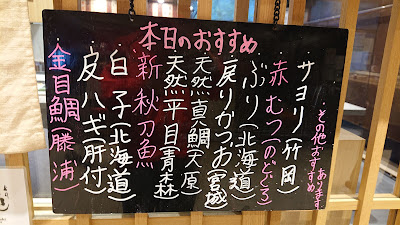 本日のおすすめ
・その他おすすめあります
・サヨリ(竹岡)
・赤むつ(のどぐろ)
・ぶり(北海道)
・戻りがつお(宮城)
・天然真鯛(大原)
・天然平目(青森)
・新秋刀魚
・白子(北海道)
・皮ハギ(肝付)
・金目鯛(勝浦)